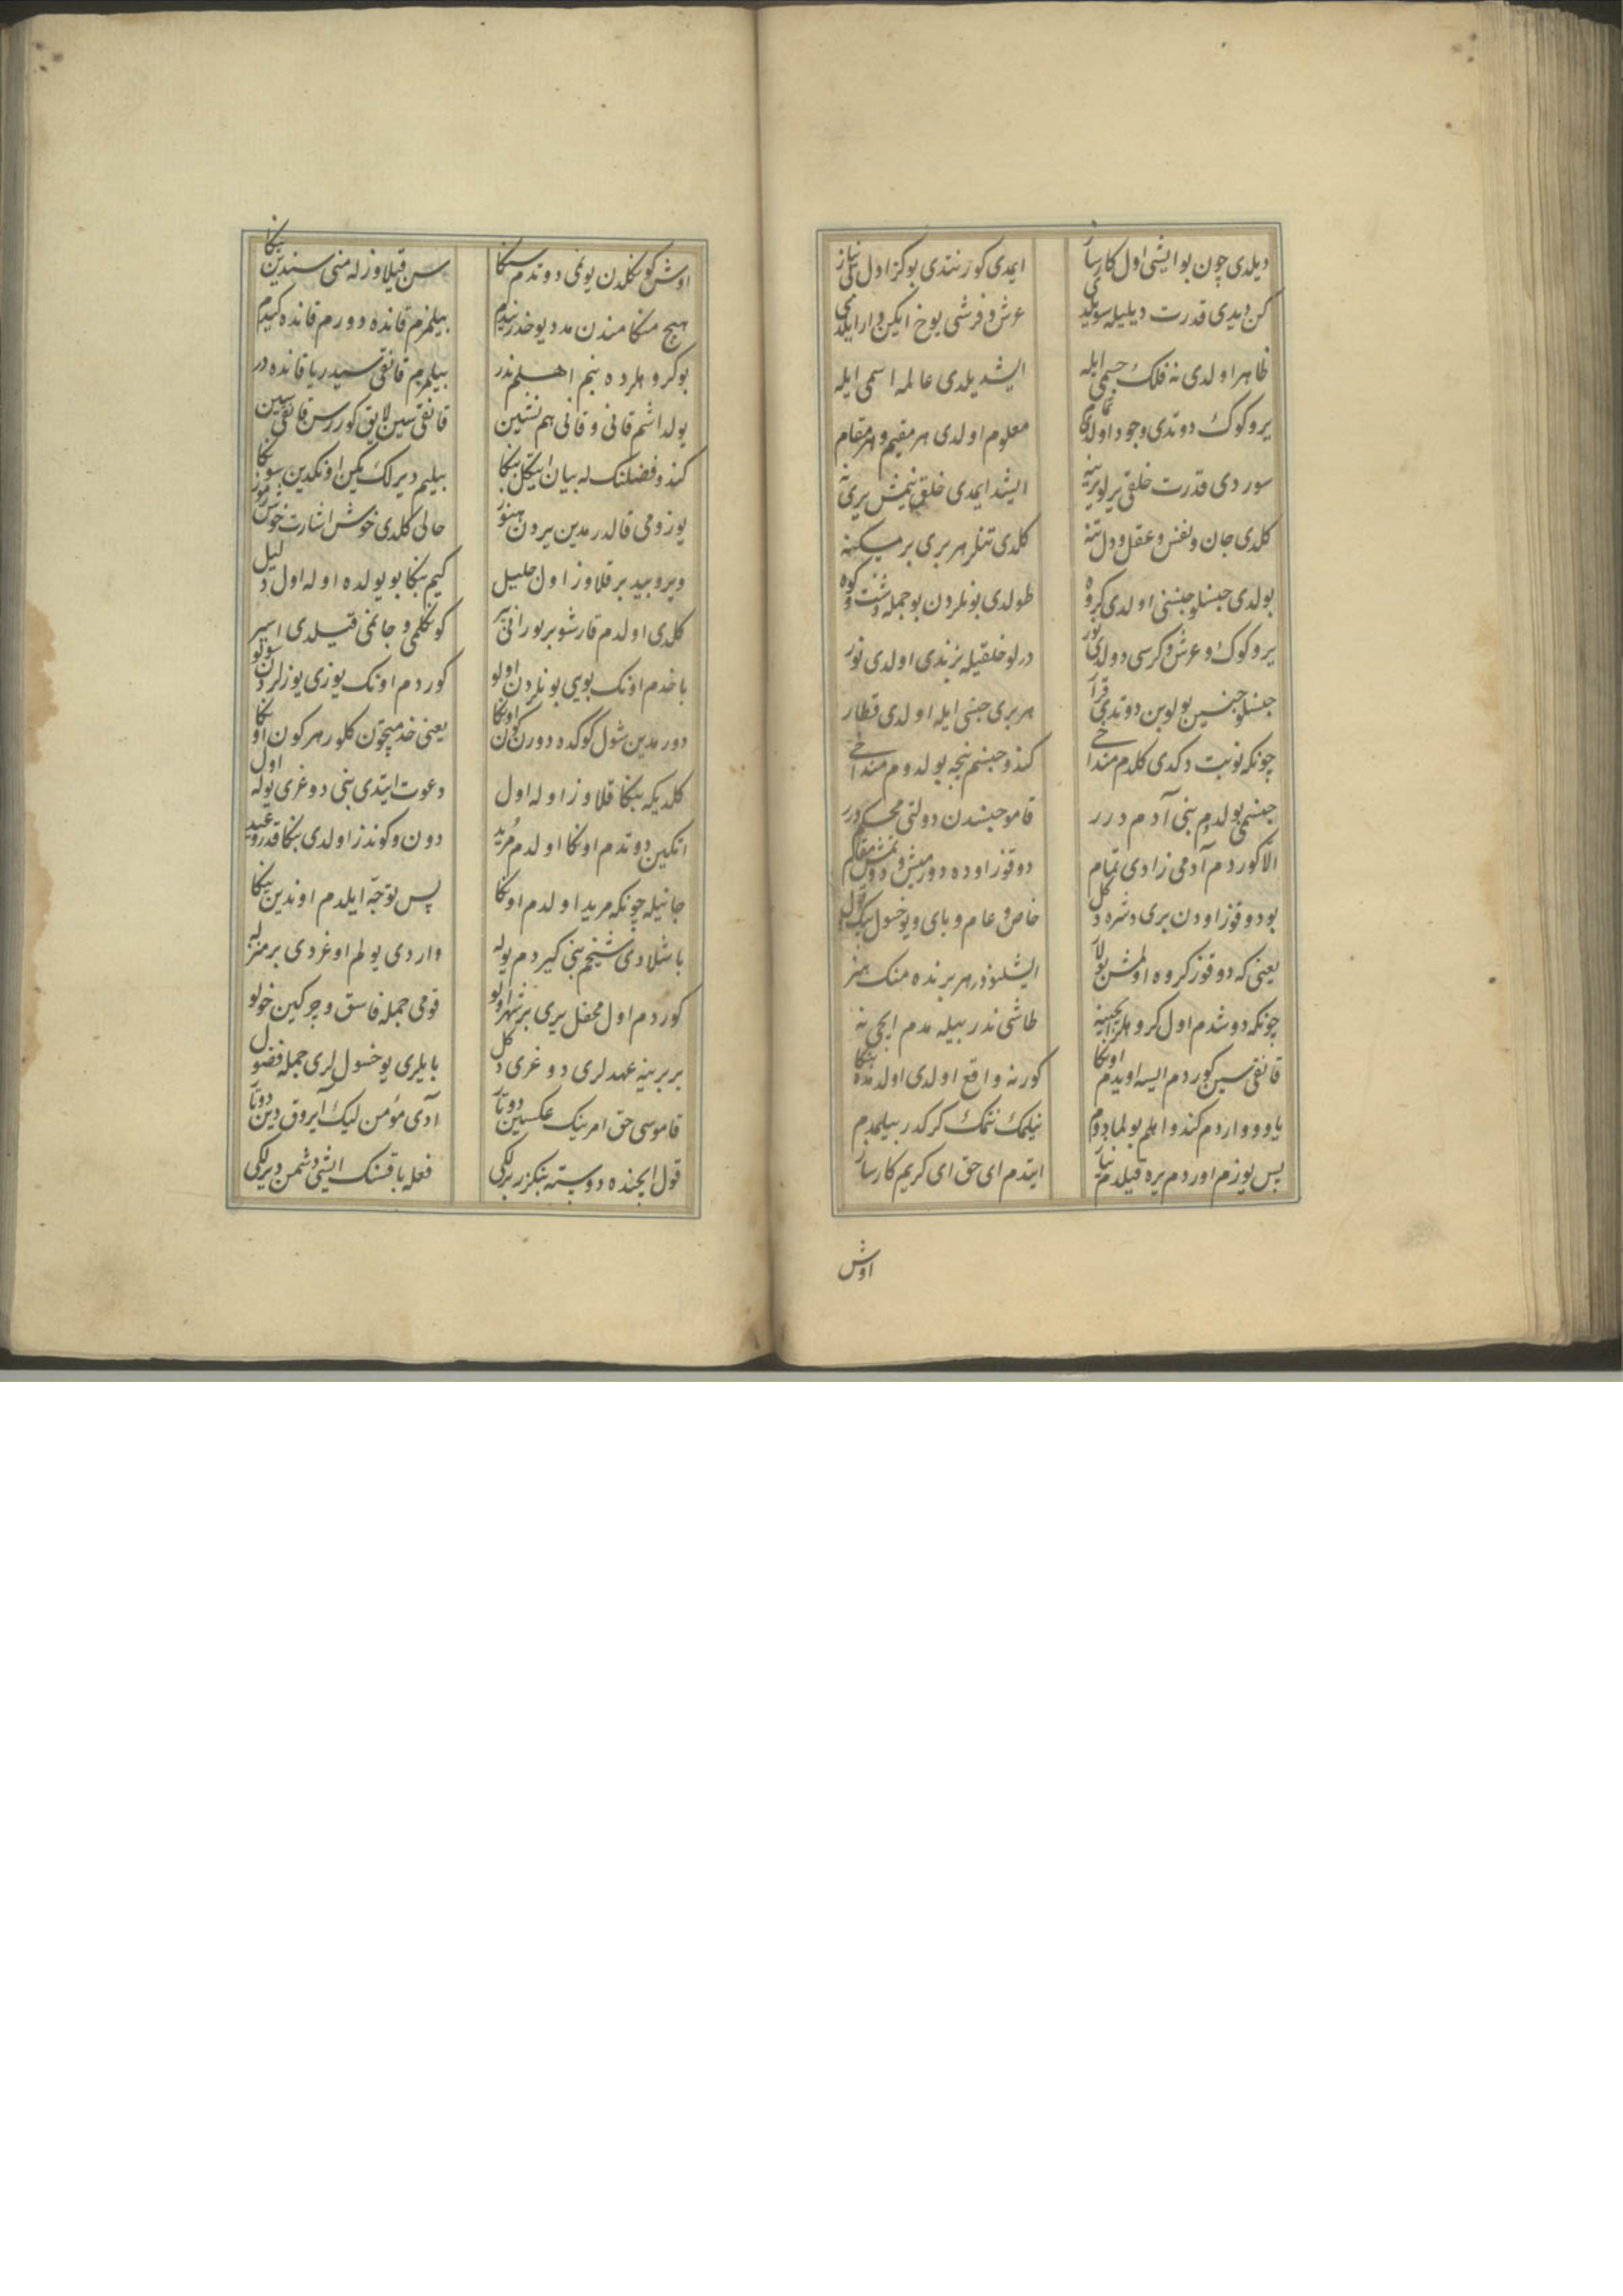 دیلدی چون بو ایشی اول کارساز ایمدی کور نتدی بو کز اول بی نیاز
کن دیدی قدرت دیلیله سویلدی عرش و فرشی یوخ ایکن وار ایلدی
ظاهر اولدی نه فلک جسمی ایله ایشدیلدی عالمه اسمی ایله
یر و کوک دوتدی وجود اولدی تمام معلوم اولدی هر مقیم و هر مقام
سوردی قدرت خلقی یرلو یرینه ایشد ایمدی خلق نیمش یری نه
کلدی جان و نفس و عقل و دل تنه کلدی تنلر هر بری بر مسکنه
بولدی جنسلو جنسنی اولدی کروه طولدی بونلردن بو جمله دشت و کوه
یر و کوک و عرش و کرسی دولدی نور درلو خلقیله بزندی اولدی نور
جنسلو جنسین بولوبن دوتدی قرار هر بری جنسی ایله اولدی قطار
چونکه نوبت دکدی کلدم من داخی کندو جنسم نجه بولدوم من داخی
جنسمی بولدم بنی آدم درر قامو جنسدن دولتی محکم درر
الا کوردم آدمی زادی تمام دوقوز اوده دورمیش و دوتمش مقام
بو دوقوز اودن بری دشره دکل خاص و عام و بای و یوخسول بیک قول
یعنی که دوقوز کروه اولمش بولار ایشلنوذر هر برنده منک هنر
چونکه دوشدم اول کروهلر ایچینه طاشی ندر بیله مدم ایچی نه
قانقی سین کوردم ایسه اویدم اونکا کور نه واقع اولدی اولدمده بنکا
یاووو واردم کندو اهلم بولمادوم نیلمک نتمک کرکدر بیلمدم
پس یوزم اوردم یره قیلدم نیاز ایتدم ای حق ای کریم کارساز
اوش
اوش کونکلدن یونمی دوتدم سنکا سن قیلاوزله منی سندین بنکا
هیچ منکا مندن مدد یوخدر نیدم بیلمزم قانده دورم قانده کیدم
بو کروهلرده بنم اهلم ندر بیلمزم قانقی سیدر یا قانده در
یولداشم قانی و قانی همنشین قانقی سین لایق کوررسن قانقی سین
کندو فضلنک له بیان ایتکل بنکا بیلیم دیرلک یکین اونکدین سونکا
یوزومی قالدرمدین یردن هنوز حالی کلدی خوش اشارت خوش رموز
ویروبید بر قلاوز اول جلیل کیم بنکا بو یولده اوله اول دلیل
کلدی اولدم قارشو بر نورانی پیر کونکلمی و جانمی قیلدی اسیر
باخدم اونک بویی بونلردن اولو کوردم اونک یوزی یوزلردن سولو
دورمدین شول کوکده دورن کون اونکا یعنی خدمیچون کلور هر کون اونکا
کلدیکه بنکا قلاوز اوله اول دعوت ایتدی بنی دوغری یوله اول
اتکین دوتدم اونکا اولدم مرید دون و کوندز اولدی بنکا قدر و عید
جانیله چونکه مرید اولدم اونکا پس توجه ایلدم اوندین ینکا
باشلادی شیخم بنی کیردم یوله واردی یولم اوغردی بر منزله
کوردم اول محفل یری بر شهر اولو قومی جمله فاسق و چرکین خولو
بر برینه عهدلری دوغری دکل بایلری یوخسول لری جمله فضول
قاموسی حق امرینک عکسین دوتار آدی مؤمن لیک آیروق دین دوتار
قول ایچنده دوسته بنکزر برلکی فعله باقسنک ایشی دشمن دیرلکی